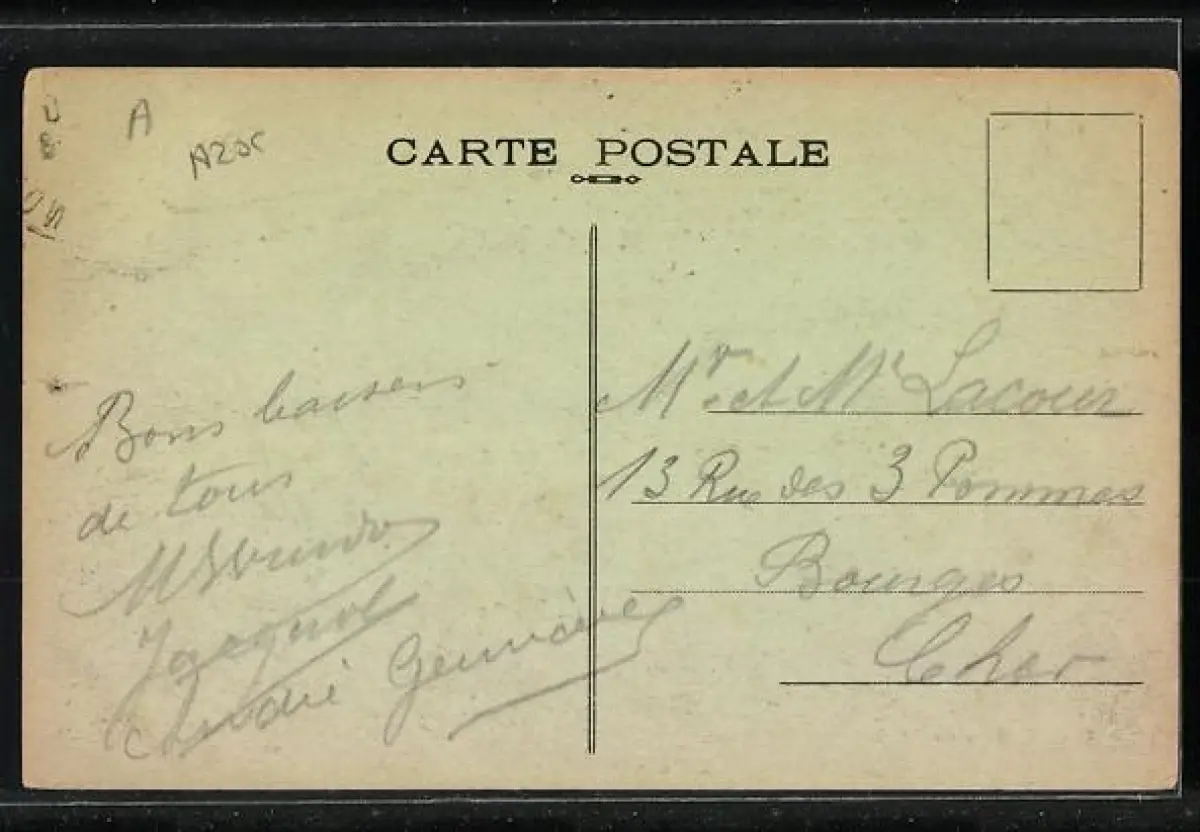 A
Azor
CARTE POSTALE
Bons baisers
de tous
André Geneviève
Mr et Me Lacour
13 Rue des 3 Pommes
Bourges
Cher